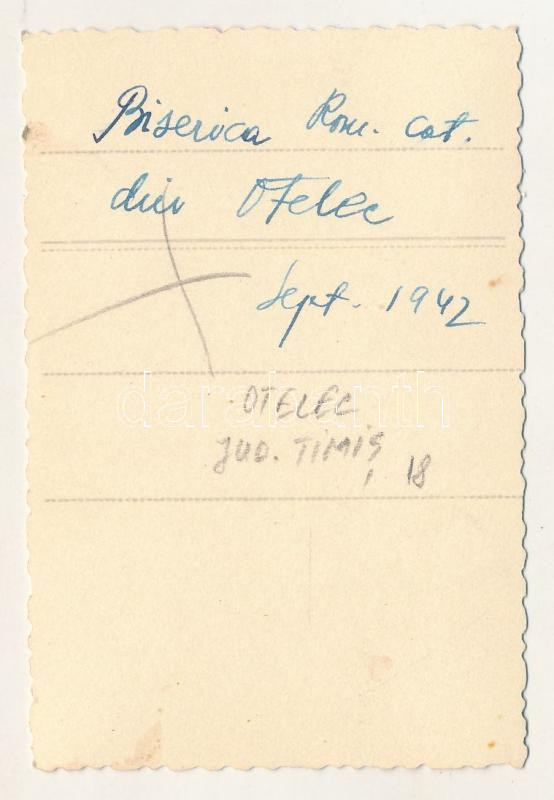 Biserica Rom. Cat.
din Otelec
Sept. 1942
darabanth
OTELEC
JUD. TIMIȘ, 18